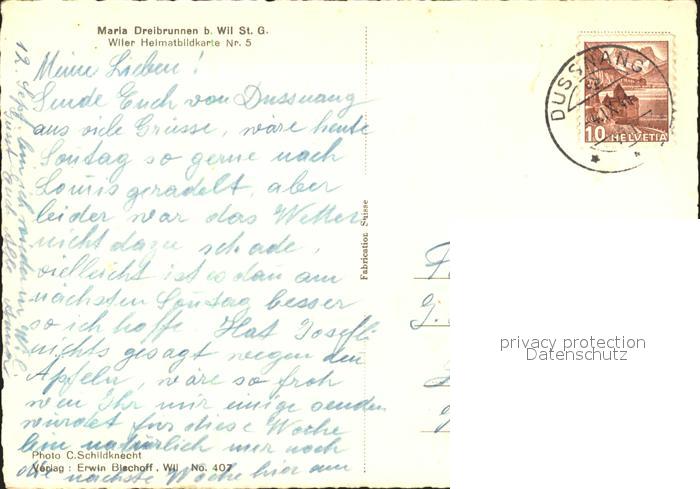 Maria Dreibrunnen b. Wil St. G.
Wiler Heimatbildkarte Nr. 5
Meine Lieben!
Sende Euch von Dussnang
aus viele Grüsse, wäre heute
Sontag so gerne nach
Lomis geradelt, aber
leider war das Wetter
nicht dazu schade,
vielleicht ist es dan am
nächsten Sontag besser
so ich hoffe. Hat Josefli
nichts gesagt wegen den
Äpfeln, wäre so froh
wen Ihr mir einige senden
würdet für diese Woche
bin natürlich nur noch
die nächste Woche hier am
17. Sept. bin ich wieder in Wil
Grüsst Euch alle
Photo C.Schildknecht
Verlag : Erwin Bischoff, Wil No. 407
Fabrication Suisse
DUSSNANG
10 HELVETIA
privacy protection
Datenschutz